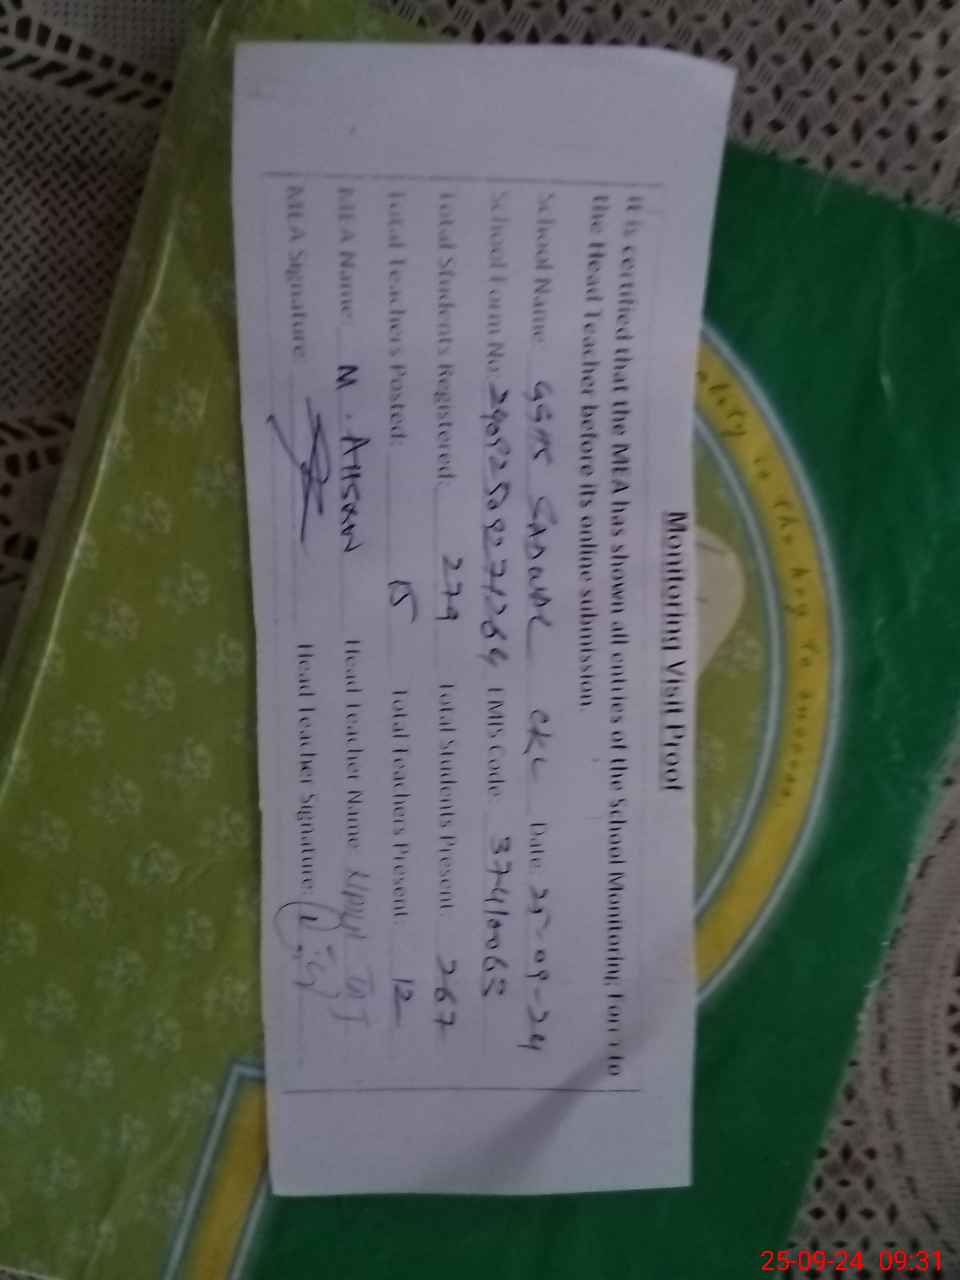 Monitoring Visit Proof
It is certified that the MEA has shown all entries of the School Monitoring Form to
the Head Teacher before its online submission.
School Name: GGHS CKL Date: 25-09-24
School Form No: EMIS Code: 37410065
Total Students Registered: 279 Total Students Present: 267
Total Teachers Posted: 15 Total Teachers Present: 12
MEA Name: M. AHSAN Head Teacher Name:
MEA Signature: Head Teacher Signature:
ality is the key to success.
25-09-24 09:31